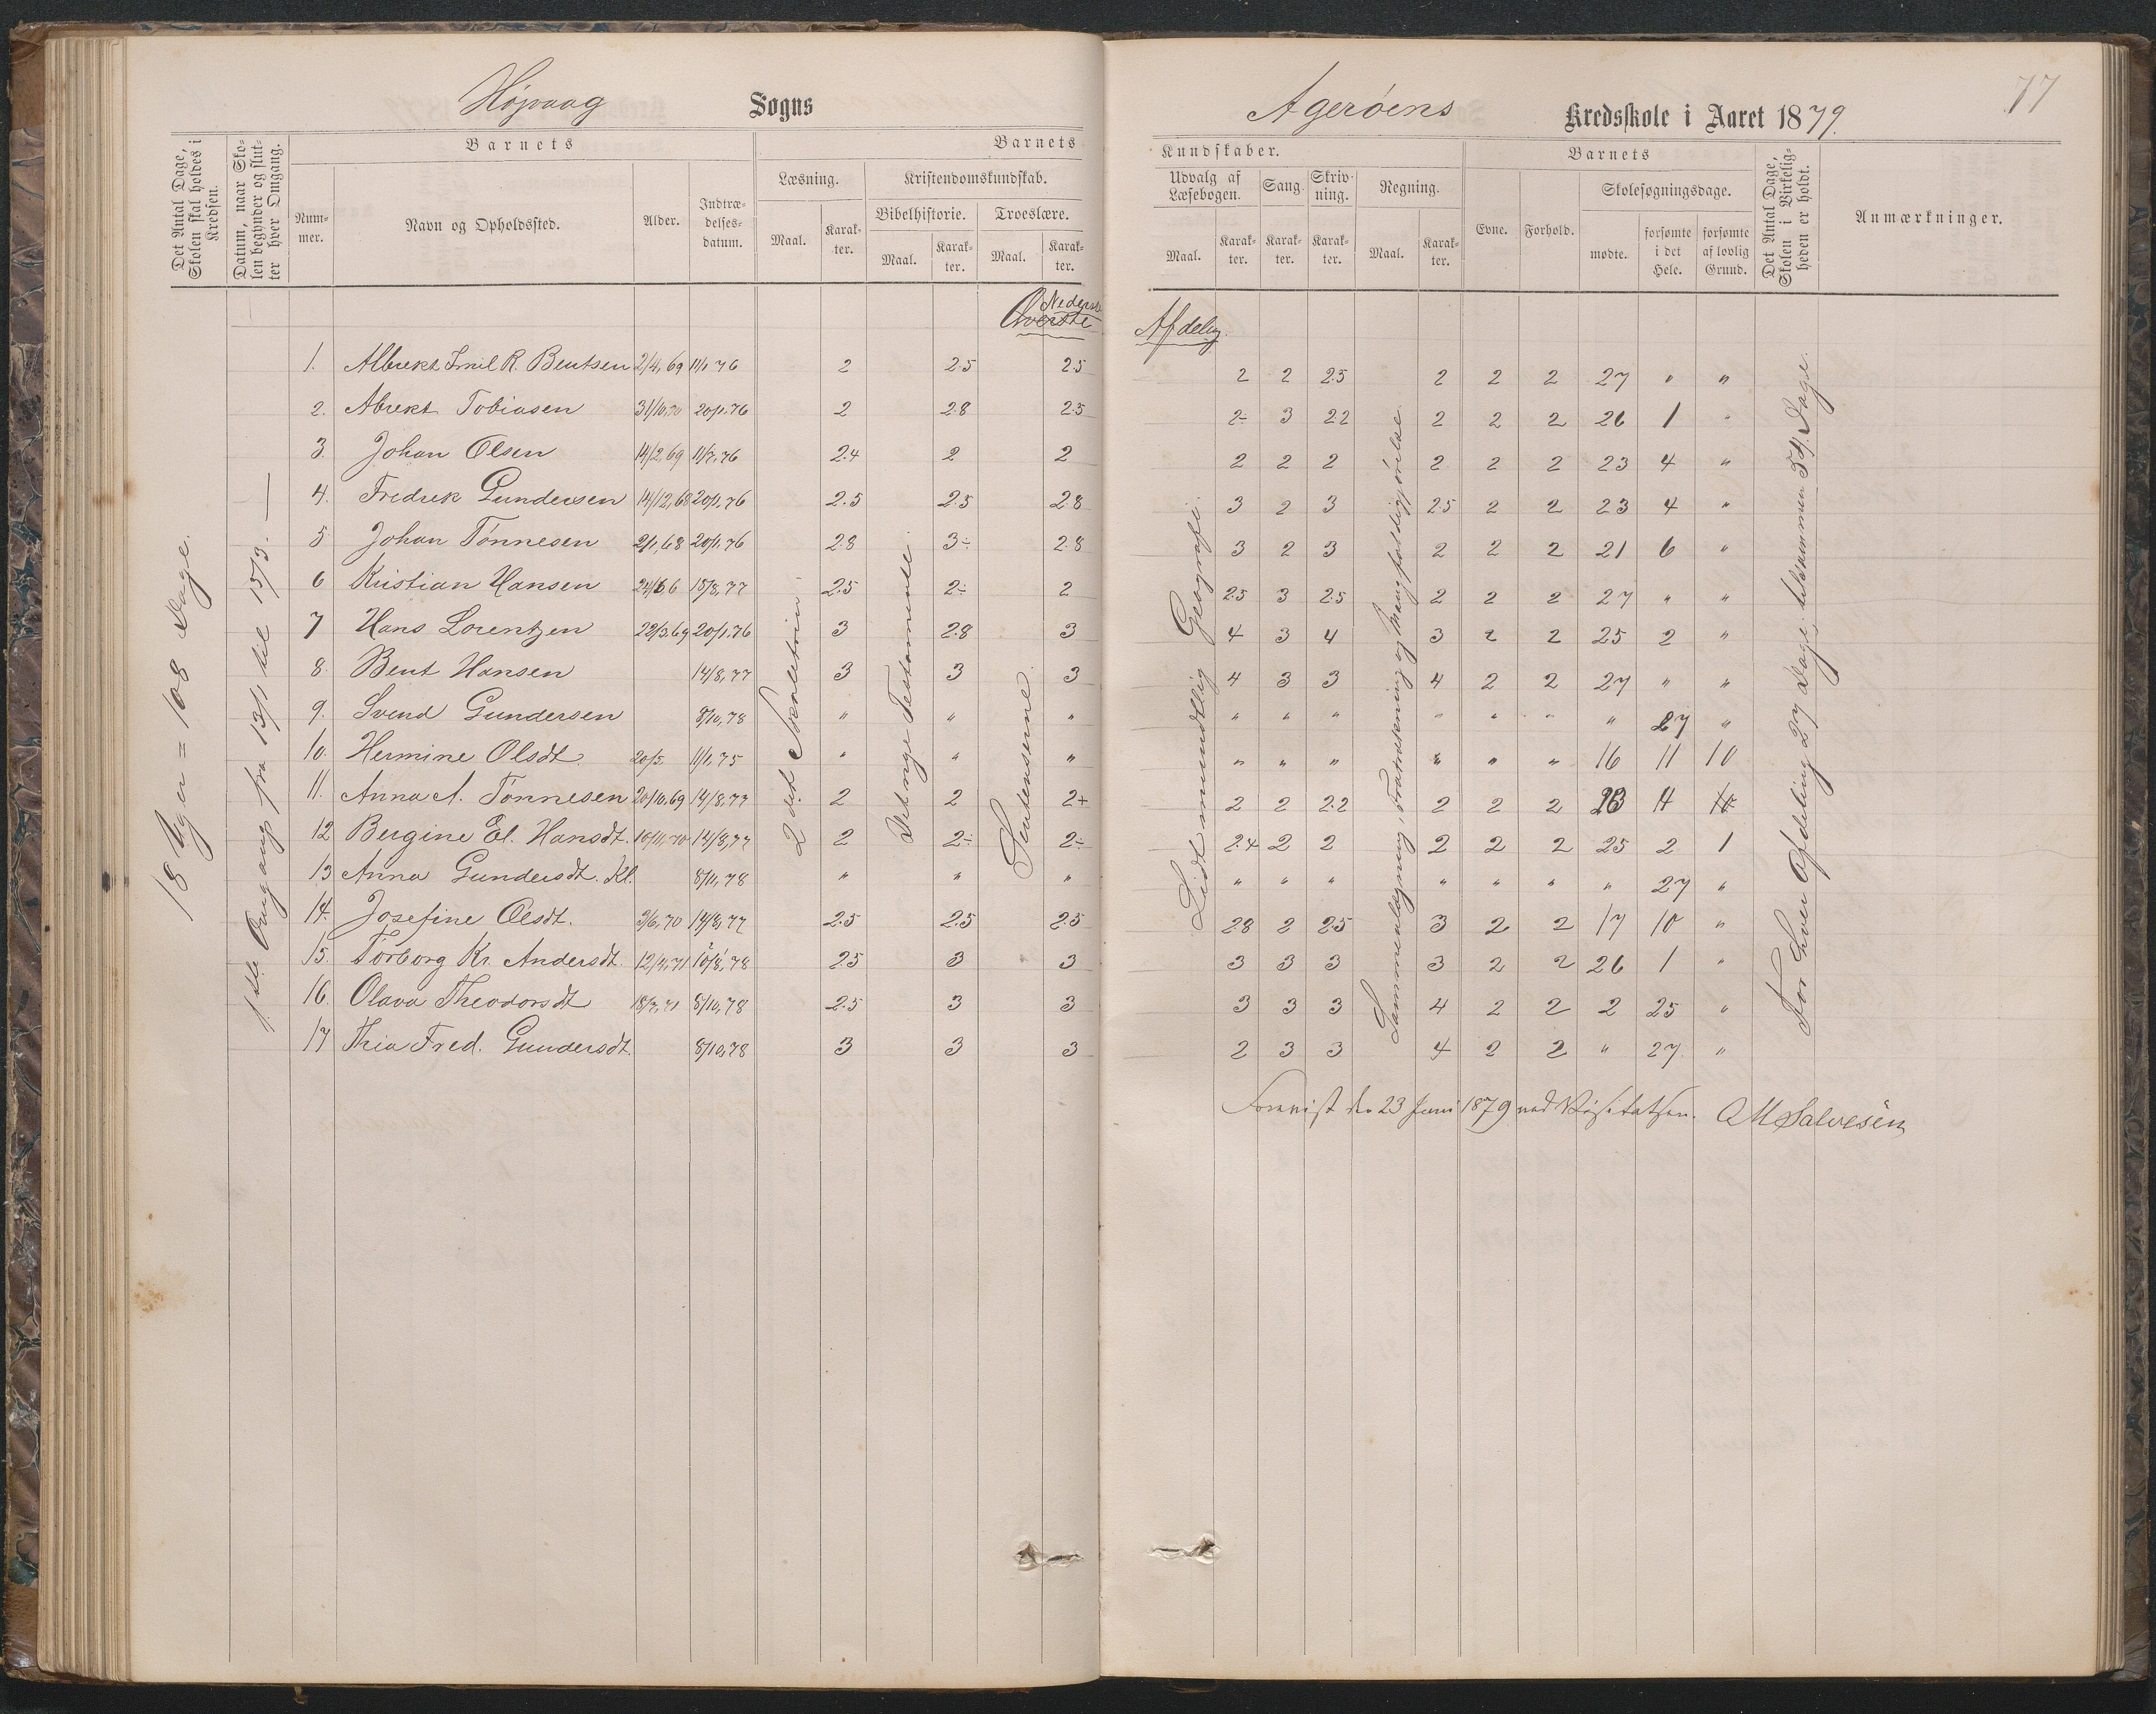 Høivaag Sogns
Agerøens Kredsskole i Aaret 1879.
77
Det Antal Dage, Skolen skal holdes i Kredsen.
Datum, naar Skolen begynder og slutter hver Omgang.
Barnets
Nummer.
Navn og Opholdssted.
Alder.
Indtrædelsesdatum.
Barnets
Læsning.
Maal.
Karakter.
Kristendomskundskab.
Bibelhistorie.
Maal.
Karakter.
Troeslære.
Maal.
Karakter.
Kundskaber.
Udvalg af Læsebogen.
Maal.
Karakter.
Sang.
Karakter.
Skrivning.
Karakter.
Regning.
Maal.
Karakter.
Barnets
Evne.
Forhold.
Skolesøgningsdage.
mødte.
forsømte i det Hele.
forsømte af lovlig Grund.
Det Antal Dage, Skolen i Virkeligheden er holdt.
Anmærkninger.
Nederste
Øverste Afdeling.
18 Uger = 108 Dage.
1ste Omgang fra 13/1 til 15/3.
2det Skoletrin.
Det nye Testamente.
Sentenserne.
Lidt mundtlig Geografi.
Sammenlægning, Fradragning og Mangfoldiggjørelse.
For hver Afdeling 27 Dage tilsammen 54 Dage.
1. Albrekt Emil R. Bentsen 2/4, 69 11/1 76 2 2.5 2.5 2 2 2.5 2 2 2 27 " "
2. Abrekt Tobiasen 31/10, 70 20/1, 76 2 2.8 2.5 2÷ 3 2.2 2 2 2 26 1 "
3. Johan Olsen 14/2, 69 11/7, 76 2.4 2 2 2 2 2 2 2 2 23 4 "
4. Fredrek Gundersen 14/12, 68 20/1, 76 2.5 2.5 2.8 3 2 3 2.5 2 2 23 4 "
5 Johan Tønnesen 2/1, 68 20/1, 76 2.8 3÷ 2.8 3 2 3 2 2 2 21 6 "
6 Kristian Hansen 24/6 66 15/8, 77 2.5 2÷ 2 2.5 3 2.5 2 2 2 27 " "
7 Hans Lorentzen 22/3. 69 20/1, 76 3 2.8 3 4 3 4 3 2 2 25 2 "
8. Bent Hansen 14/8, 77 3 3 3 4 3 3 4 2 2 27 " "
9. Svend Gundersen 8/10, 78 " " " " " " " " " " 27 "
10. Hermine Olsdt. 20/5 11/1, 75 " " " " " " " " " 16 11 10
11. Anna A. Tønnesen 20/10, 69 14/8, 77 2 2 2+ 2 2 2.2 2 2 2 23 4
12 Bergine El. Hansdt. 10/11, 70 14/8, 77 2 2÷ 2÷ 2.4 2 2 2 2 2 25 2 1
13 Anna Gundersdt. Kl. 8/11, 78 " " " " " " " " " " 27 "
14. Josefine Olsdt. 3/6, 70 14/8, 77 2.5 2.5 2.5 2.8 2 2.5 3 2 2 17 10 "
15. Torborg Kr. Andersdt. 12/4, 71 10/8, 78 2.5 3 3 3 3 3 3 2 2 26 1 "
16. Olava Theodorsdt 18/7, 71 8/10, 78 2.5 3 3 3 3 3 4 2 2 2 25 "
17 Thia Fred. Gundersdt. 8/10, 78 3 3 3 2 3 3 4 2 2 " 27 "
Forevist den 23 Juni 1879 ved Visitatsen. OMSalvesen